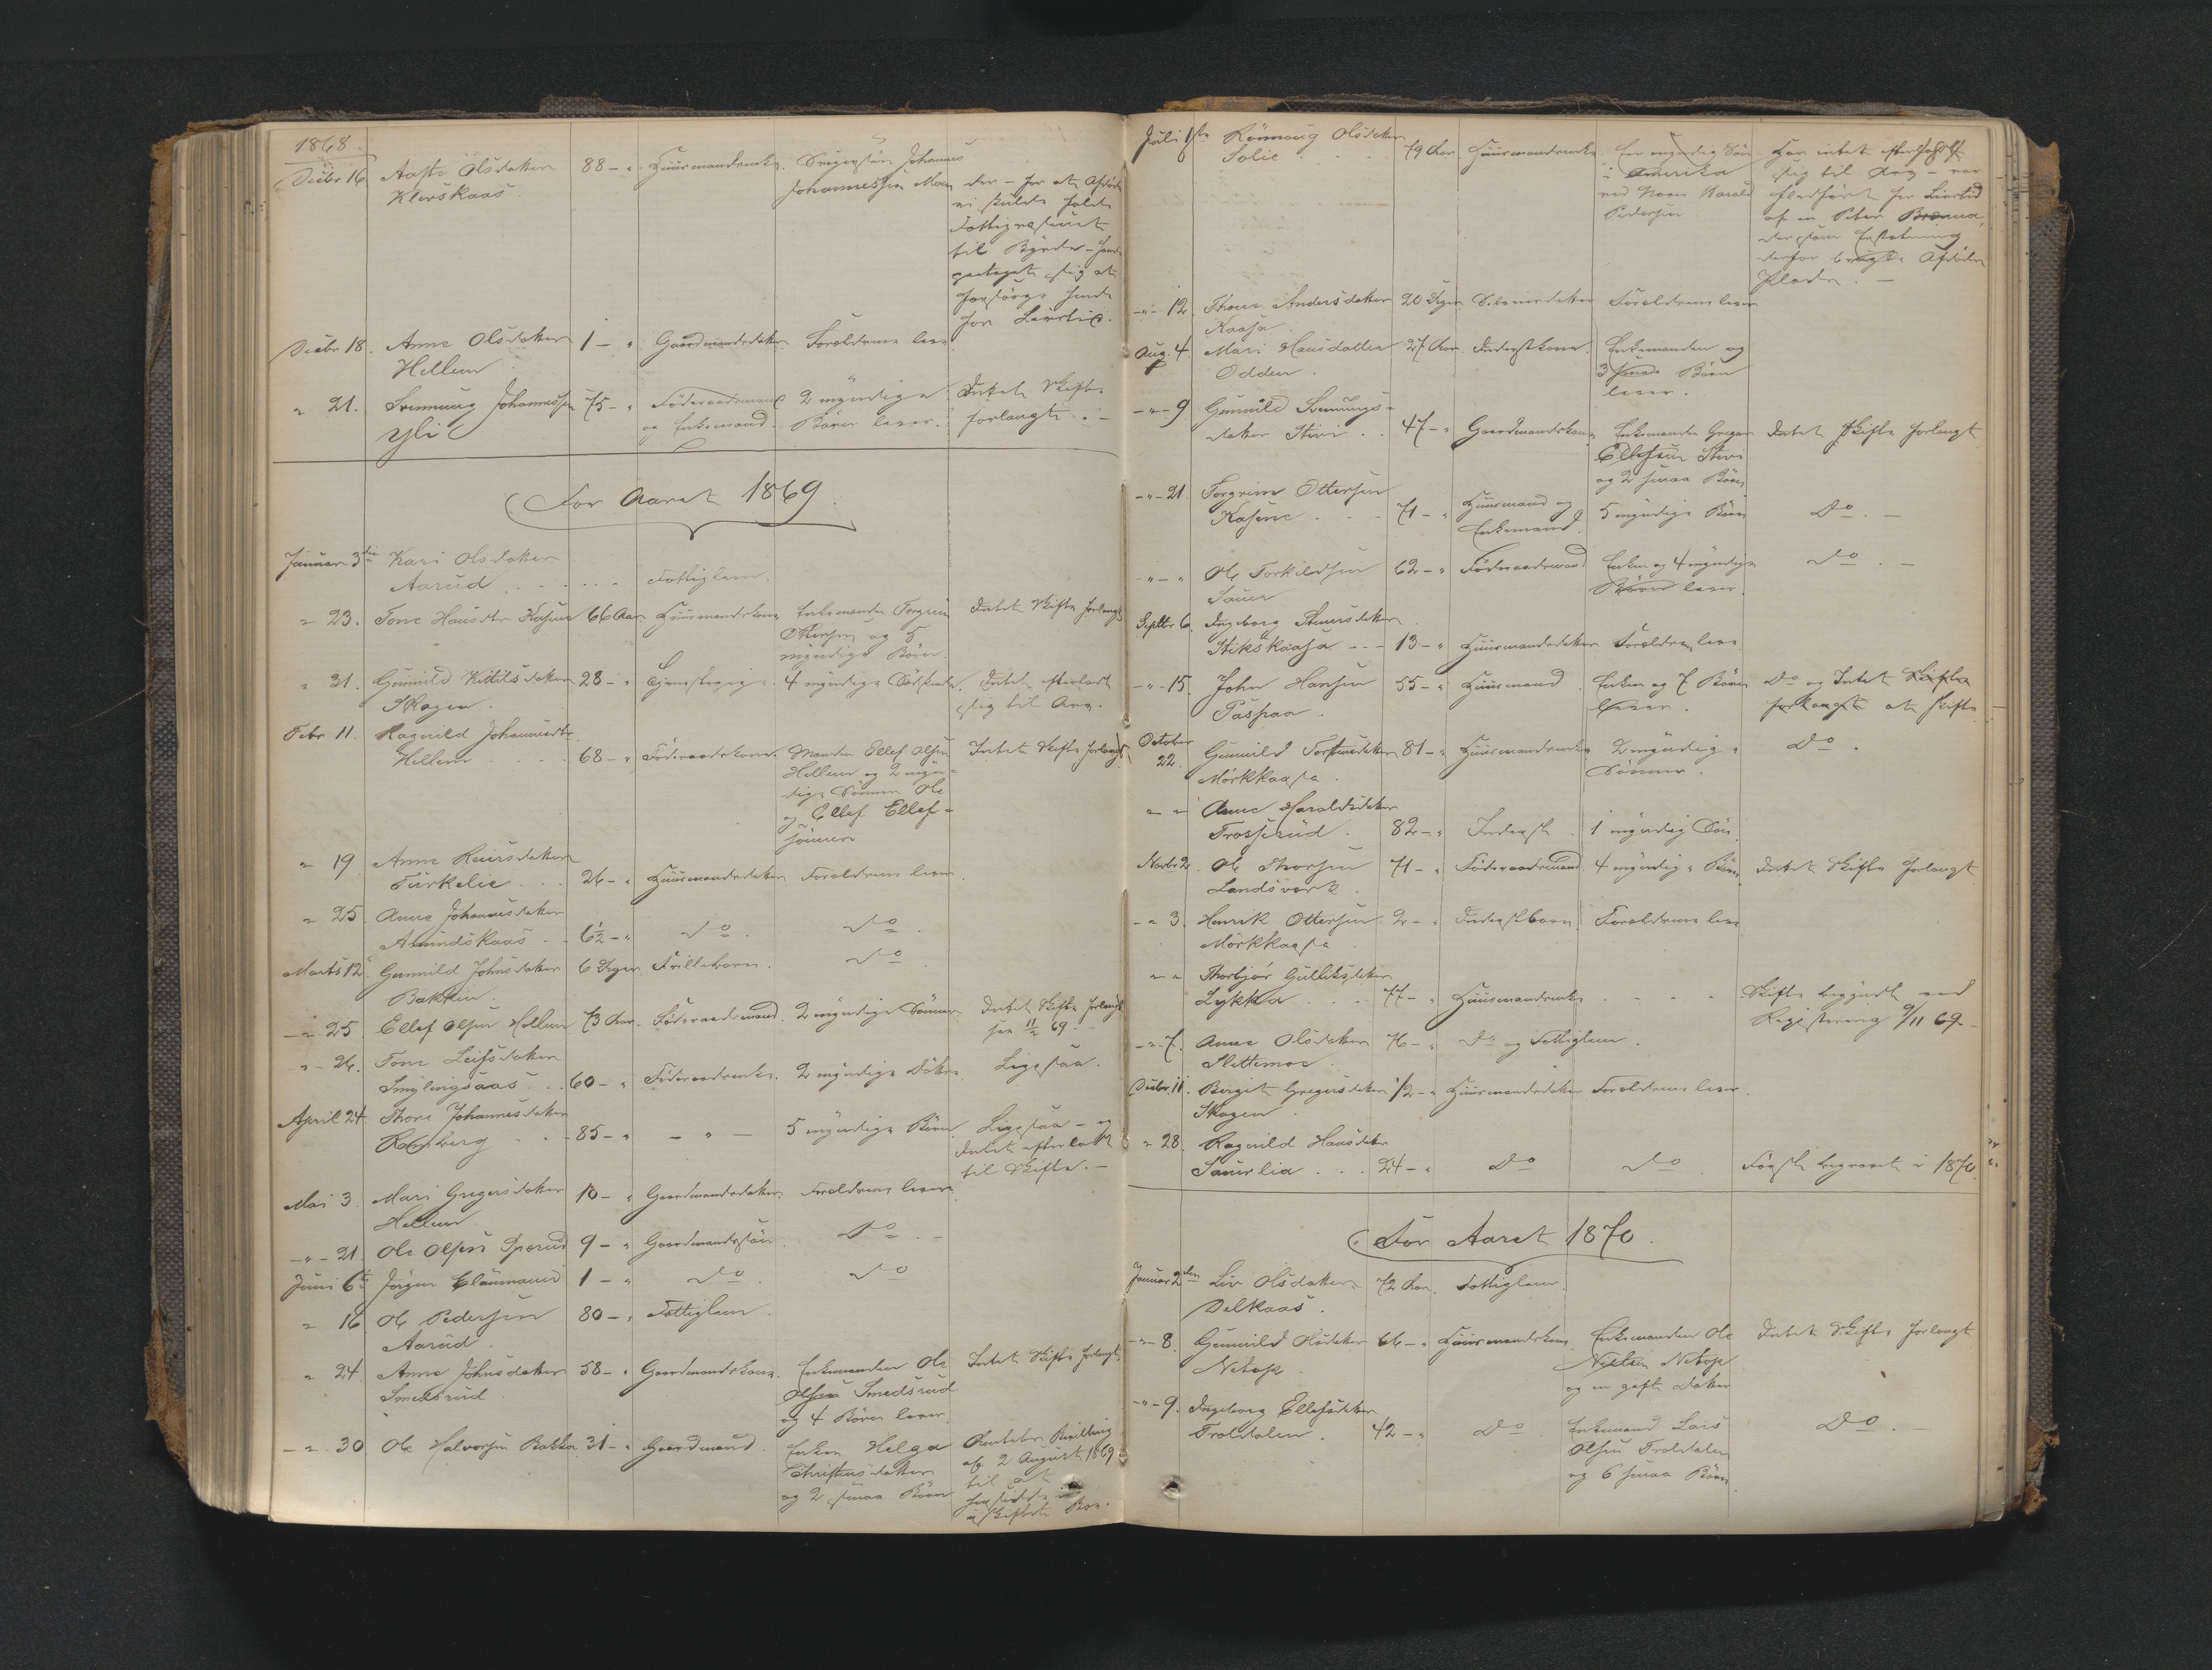 1868.
Decbr 16. Aaste Olsdatter 88 – " Huusmandsenke. Svigersøn Johannes
Klevskaas. Johannessen Moen
der – for at Afdøde
ei skulde falde
Fattigvæsenet
til Byrde –
paataget sig at
forsørge hende
for Livstid.
Decbr 18. Anne Olsdatter 1 – " Gaardmandsdatter. Forældrene lever
Hellem
" 21. Svennung Johannessen 75 – " Føderaadsmand 2 myndige Intet Skifte
Yli og Enkemand. Børn lever. forlangt. –
For Aaret 1869.
Januar 3die Kari Olsdatter
Aarud . . . . . Fattiglem.
" 23. Tone Hansdtr Kasene 66 Aar Huusmandskone Enkemanden Torgrim Intet Skifte forlangt
Ottersen og 5
myndige Børn.
" 31. Gunnild Kittilsdatter 28 – " Tjenestepige. 4 myndige Sødskende. Intet efterladt
Skogen. sig til Arv.
Febr 11. Ragnild Johannesdtr
Hellem . . . . 68 – " Føderaadskone. Manden Ellef Olsen Intet Skifte forlangt
Hellem og 2 myn-
dige Sønner Ole
og Ellef Ellef-
sønner
" 19 Anne Reiersdatter
Turkelie . . . 26 – " Huusmandsdatter Forældrene lever.
" 25 Anne Johannesdatter
Amundskaas . . 6½ – " Do. Do.
Marts 12. Gunnild Johnsdatter 6 Dager Frillebarn. Do
Bakken.
– " 25 Ellef Olsen Hellem 73 Aar. Føderaadsmand. 2 myndige Sønner Intet Skifte forlangt
see 11/2 69.
– " 26. Tone Leifsdatter
Smylingsaas . . 60 – " Føderaadsenke. 2 myndige Døttre Ligesaa.
April 24 Thore Johannesdatter
. . . 85 – " – " – 5 myndige Børn. Ligesaa – og
Intet efterladt
til Skifte. –
Mai 3 Mari Gregersdatter 10 – " Gaardmandsdatter. Forældrene lever
Hellem
– " – 21. Ole Olsen Sporud 9 – " Gaardmandssøn Do. –
Juni 6te Jørgen 1 – " Do. Do
" 16 Ole Pedersen 80 – " Fattiglem.
Aarud.
" 24. Anne Johnsdatter 58 – " Gaardmandskone. Enkemanden Ole Intet Skifte forlangt.
Smedsrud Olsen Smedsrud
og 4 Børn lever.
– " 30. Ole Halvorsen Bakka 31 – " Gaardmand. Enken Helga Amtets Bevilling
Christensdatter af 2 August 1869
og 2 smaa Børn til at
hensidde i
uskiftet Bo.
Juli 1ste Rønnaug Olsdatter
Solie . . . . 79 Aar. Huusmandsenke. En myndig Søn Har intet efterladt
i Amerika sig til Arv – var
ved Navn Harald
Pedersen Livstid
af en Peter
der som Erstatning
derfor brugte Afdødes
Plads. –
– " – 12. Thone Andersdatter 20 Dager Forældrene lever
Kaasa
Aug. 4 Mari Hansdatter 27 Aar Inderstkone. Enkemanden og
Odden. 3 smaa Børn
lever.
– " – 9. Gunnild Svennungs-
datter Stivi . . 47 – " Gaardmandskone Enkemanden Greger Intet Skifte forlangt
Ellefsen Stivi
og 2 smaa Børn
– " – 21. Torgrim Ottersen
Kasene . . . 71 – " Huusmand og 5 myndige Børn Do. –
Enkemand.
– " – " Ole Torkildsen 62 – " Føderaadsmand Enken og 4 myndige Do. –
Sauer Børn lever.
Septbr 6. Ingeborg
Stikskaasa – – 13 – " Huusmandsdatter Forældrene lever
– " – 15. John Hansen 55 – " Huusmand. Enken og 7 Børn Do og Intet Skifte
Paspaa. lever. forlangt at skifte
October
22. Gunnild 81 – " Huusmandsenke 2 myndige Do.
Mørkkaasa. Sønner.
" – " Anne Haraldsdatter
Trosserud. 82 – " Inderst. 1 myndig Søn.
Novbr 2. Ole Thorsen 71 – " Føderaadsmand 4 myndige Børn Intet Skifte forlangt
Landsverk.
– " 3. Henrik Ottersen. 2 – " Inderstbarn. Forældrene lever
Mørkkaasa
" – " Thorbjør Gulliksdatter
Lykka . . . . 77 – " Huusmandsenke . . . . Skifte begyndt ved
Registrering 9/11 69. –
– " – 7. Anne Olsdatter 76 – " Do og Fattiglem.
Slettemoe.
Decbr 11. Bergit Gregersdatter ½ – " Huusmandsdatter Forældrene lever.
Skogen.
" 28. Ragnild Hansdatter
Sauerlia . . . 24 – " Do Do. Først begravet i 1870.
For Aaret 1870.
Januar 2den Liv Olsdatter 72 Aar. Fattiglem.
Dalkaas.
– " – 8. Gunnild Olsdatter 66 – " Huusmandskone Enkemanden Ole Intet Skifte forlangt
Netop. Nielsen Netop
og en gift Datter
– " – 9. Ingeborg Ellefsdatter
Troldalen. 42 – " Do Enkemand Lars Do. –
Olsen Troldalen
og 6 smaa Børn